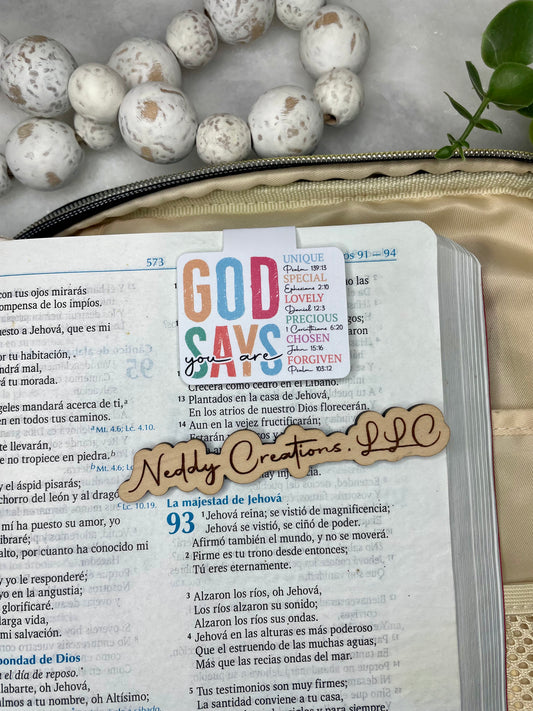 573
os 91 — 94
GOD
SAYS
you are
UNIQUE
Psalm 139:13
SPECIAL
Ephesians 2:10
LOVELY
Daniel 12:3
PRECIOUS
1 Corinthians 6:20
CHOSEN
John 15:16
FORGIVEN
Psalm 103:12
Neddy Creations, LLC
con tus ojos mirarás
ompensa de los impíos.
uesto a Jehová, que es mi
r tu habitación,
ndrá mal,
rá tu morada.
geles mandará acerca de ti,ᵃ
en todos tus caminos.
ᵃ Mt. 4.6; Lc. 4.10.
te llevarán,
e no tropiece en piedra.ᵇ
ᵇ Mt. 4.6; L
el áspid pisarás;
chorro del león y al drago
ᶜ Lc. 10.19.
mí ha puesto su amor, yo
libraré;
alto, por cuanto ha conocido mi
y yo le responderé;
yo en la angustia;
glorificaré.
larga vida,
mi salvación.
bondad de Dios
el día de reposo.
alabarte, oh Jehová,
almos a tu nombre, oh Altísimo;
Crecerá como cedro en el Líbano.
13 Plantados en la casa de Jehová,
En los atrios de nuestro Dios florecerán.
14 Aun en la vejez fructificarán;
Estarán
hay injusticia.
La majestad de Jehová
93 1 Jehová reina; se vistió de magnificencia;
Jehová se vistió, se ciñó de poder.
Afirmó también el mundo, y no se moverá.
2 Firme es tu trono desde entonces;
Tú eres eternamente.
3 Alzaron los ríos, oh Jehová,
Los ríos alzaron su sonido;
Alzaron los ríos sus ondas.
4 Jehová en las alturas es más poderoso
Que el estruendo de las muchas aguas,
Más que las recias ondas del mar.
5 Tus testimonios son muy firmes;
La santidad conviene a tu casa,